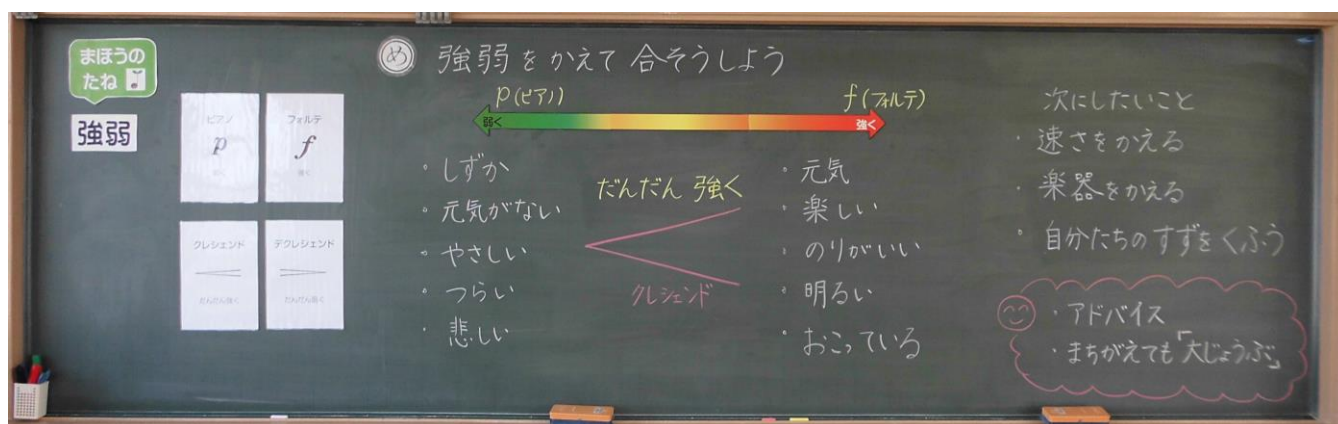 まほうの
たね
強弱
ピアノ
p
弱く
フォルテ
f
強く
クレシェンド
だんだん強く
デクレシェンド
だんだん弱く
め 強弱をかえて合そうしよう
p(ピアノ)
f(フォルテ)
弱く
強く
・しずか
・元気がない
・やさしい
・つらい
・悲しい
だんだん強く
クレシェンド
・元気
・楽しい
・のりがいい
・明るい
・おこっている
次にしたいこと
・速さをかえる
・楽器をかえる
・自分たちのすずをくふう
・アドバイス
・まちがえても「大じょうぶ」